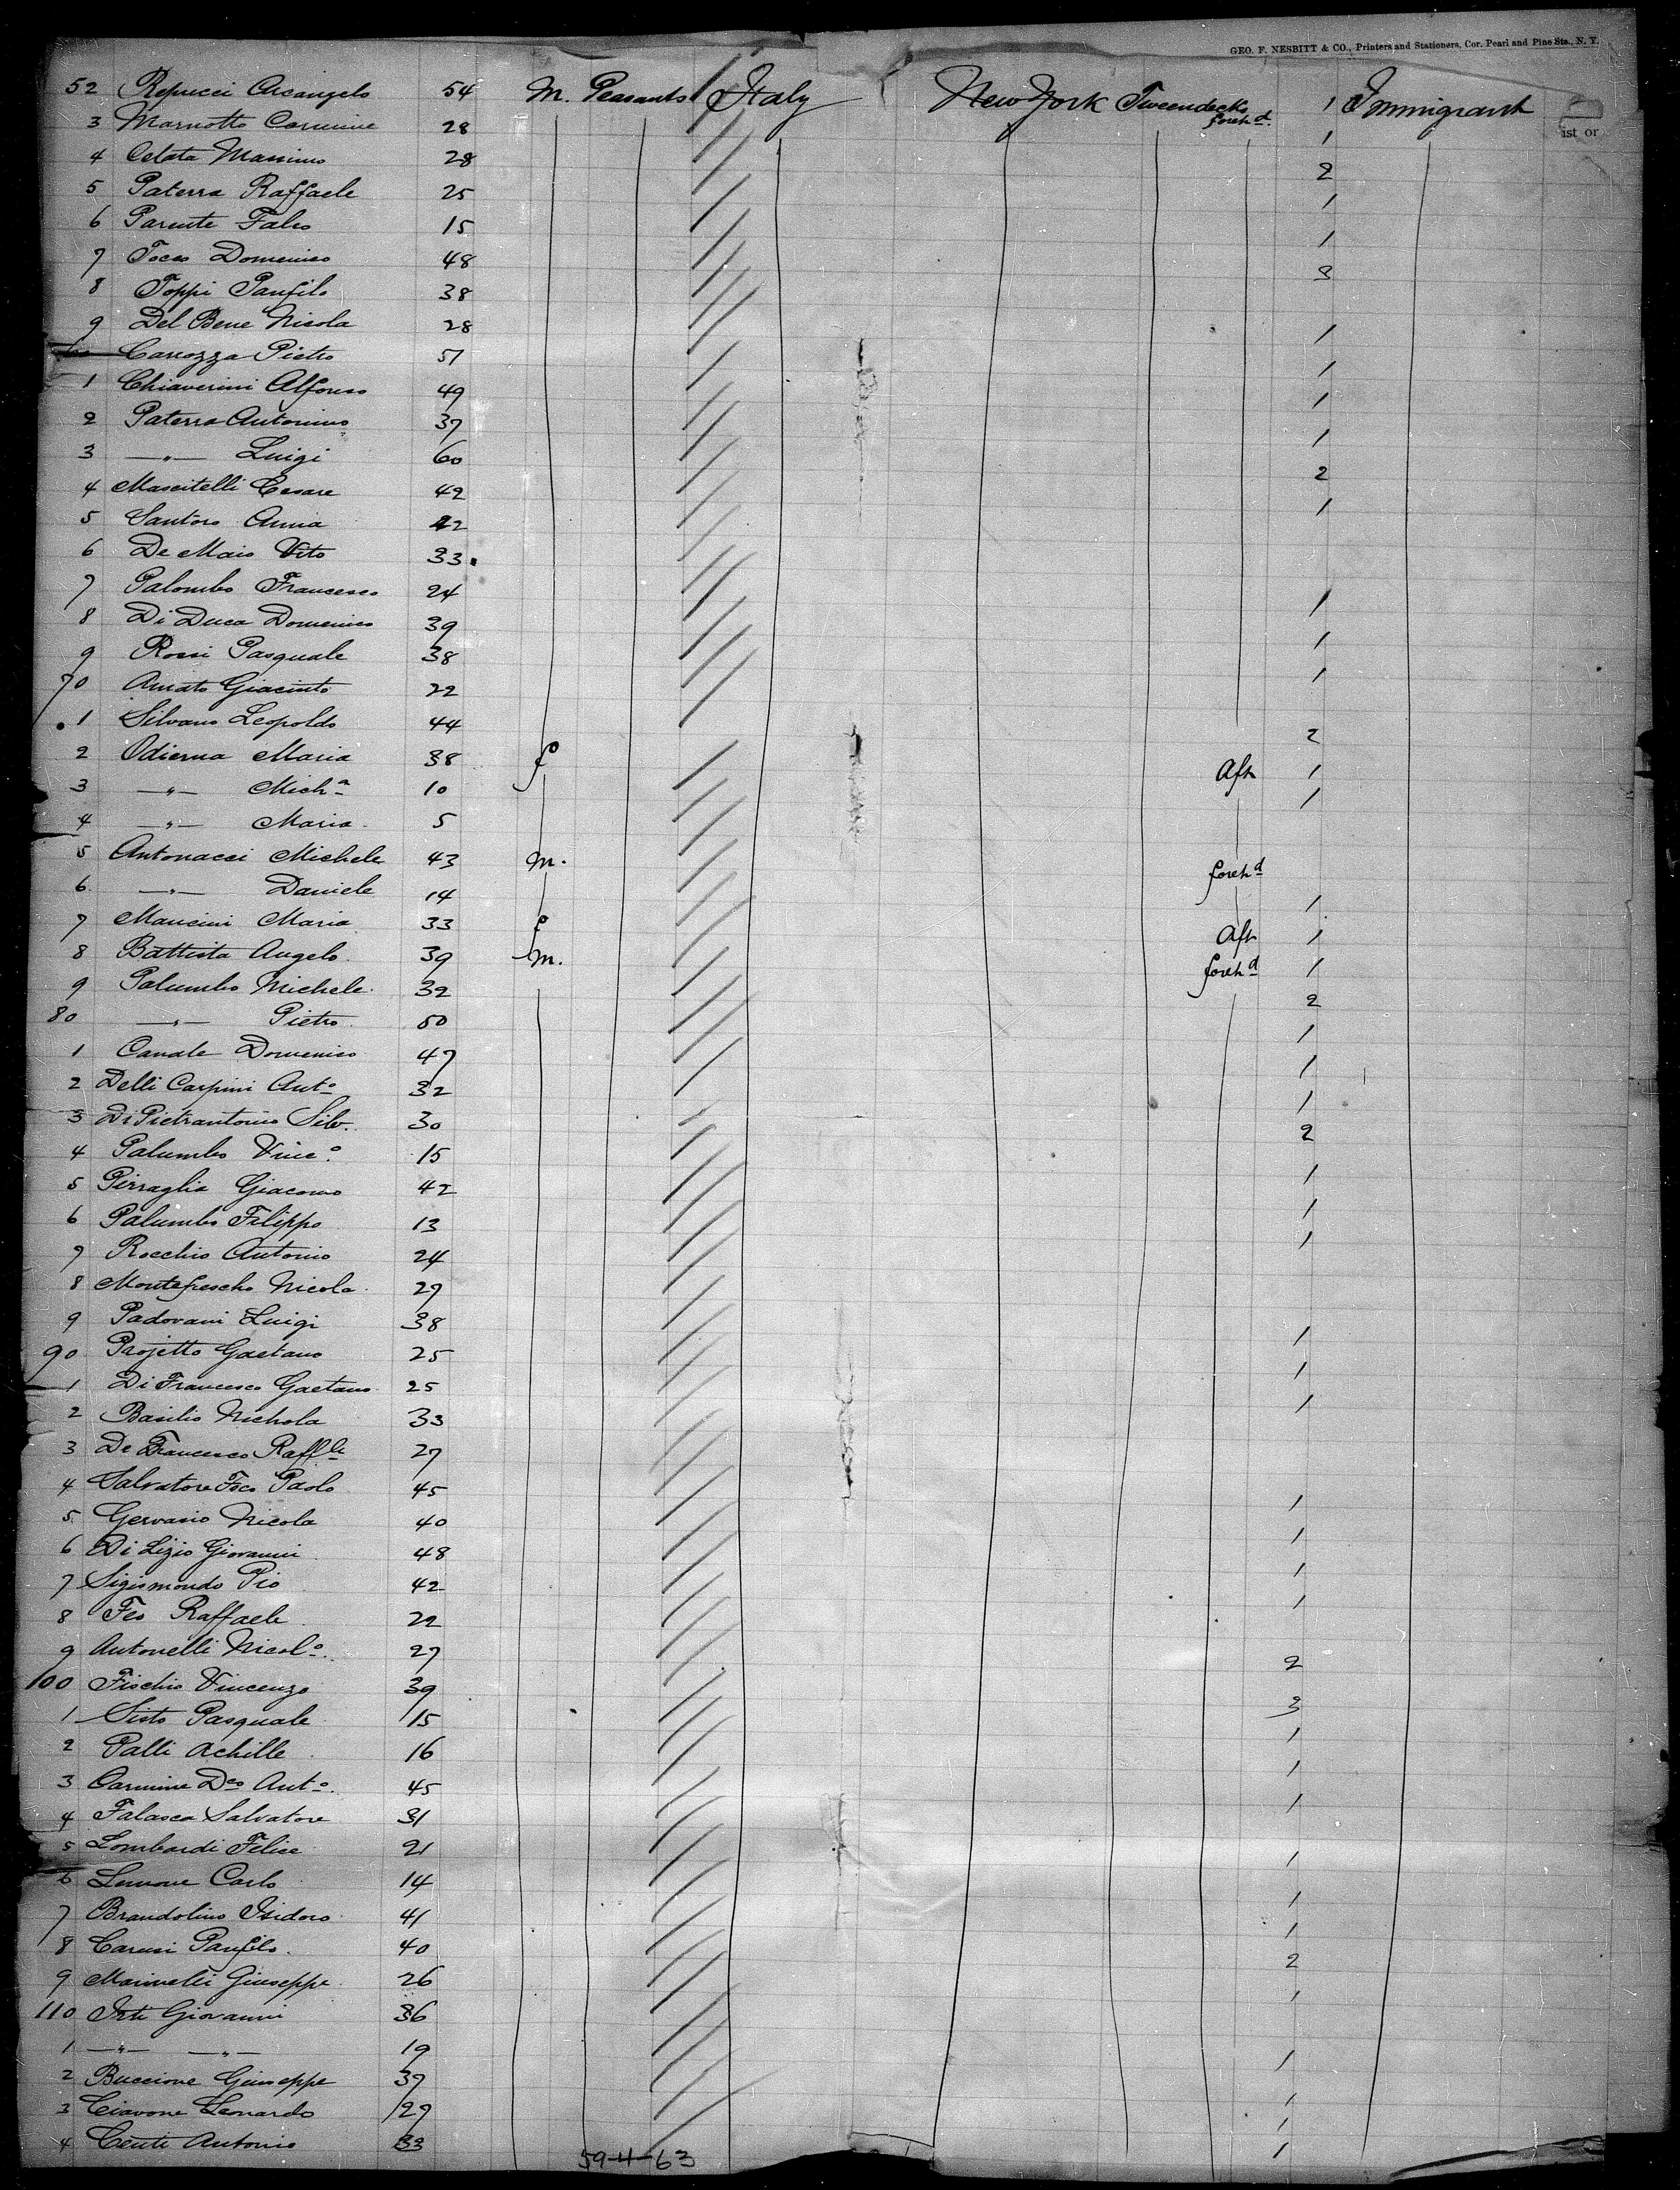 GEO. F. NESBITT & CO., Printers and Stationers, Cor. Pearl and Pine Sts., N. Y.
52 Repucci Arcangelo 54 M. Peasants Italy New York Tweendecks foreh.d 1 Immigrant
ist or
3 Marnotto Carmine 28 1
4 Celata Massimo 28 2
5 Paterra Raffaele 25 1
6 Parente Falco 15 1
7 Tocco Domenico 48 3
8 Toppi Panfilo 38
9 Del Bene Nicola 28 1
60 Carrozza Pietro 51 1
1 Chiaverini Alfonso 49 1
2 Paterra Antonino 37 1
3 —"— Luigi 60 2
4 Mascitelli Cesare 42 1
5 Santoro Anna 22
6 De Maio Vito 33
7 Palombo Francesco 24 1
8 Di Duca Domenico 39 1
9 Rossi Pasquale 38 1
70 Amato Giacinto 22
1 Silvano Leopoldo 44 2
2 Odierna Maria 38 f Aft 1
3 —"— Mich.a 10 1
4 —"— Maria 5
5 Antonacci Michele 43 m. foreh.d
6 —"— Daniele 14 1
7 Mancini Maria 33 f Aft 1
8 Battista Angelo 39 m. foreh.d 1
9 Palumbo Michele 32 2
80 —"— Pietro 50 1
1 Canale Domenico 47 1
2 Delli Carpini Ant.o 32 1
3 Di Pietrantonio Silv. 30 2
4 Palumbo Vinc.o 15 1
5 Pirraglia Giacomo 42 1
6 Palumbo Filippo 13 1
7 Rocchio Antonio 24
8 Montefrescho Nicola 27
9 Padovani Luigi 38 1
90 Projetto Gaetano 25 1
1 Di Francesco Gaetano 25 1
2 Basilio Nichola 33
3 De Francesco Raff.le 27
4 Salvatore Foco Paolo 45 1
5 Gervasio Nicola 40 1
6 Di Lizio Giovanni 48 1
7 Sigismondo Pio 42 1
8 Feo Raffaele 22
9 Antonelli Nicol.o 27 2
100 Fischio Vincenzo 39 3
1 Sisto Pasquale 15 1
2 Palli Achille 16 1
3 Carmine D.co Ant.o 45 1
4 Falasca Salvatore 31
5 Lombardi Felice 21 1
6 Carlo 14 1
7 Brandolino Isidoro 41 1
8 Carusi Panfilo 40 2
9 Marinelli Giuseppe 26 1
110 Giovanni 36
1 —"— —"— 19 1
2 Buccione Giuseppe 37 1
3 Ciavone Leonardo 27 1
4 Centi Antonio 33 1
59-4-63